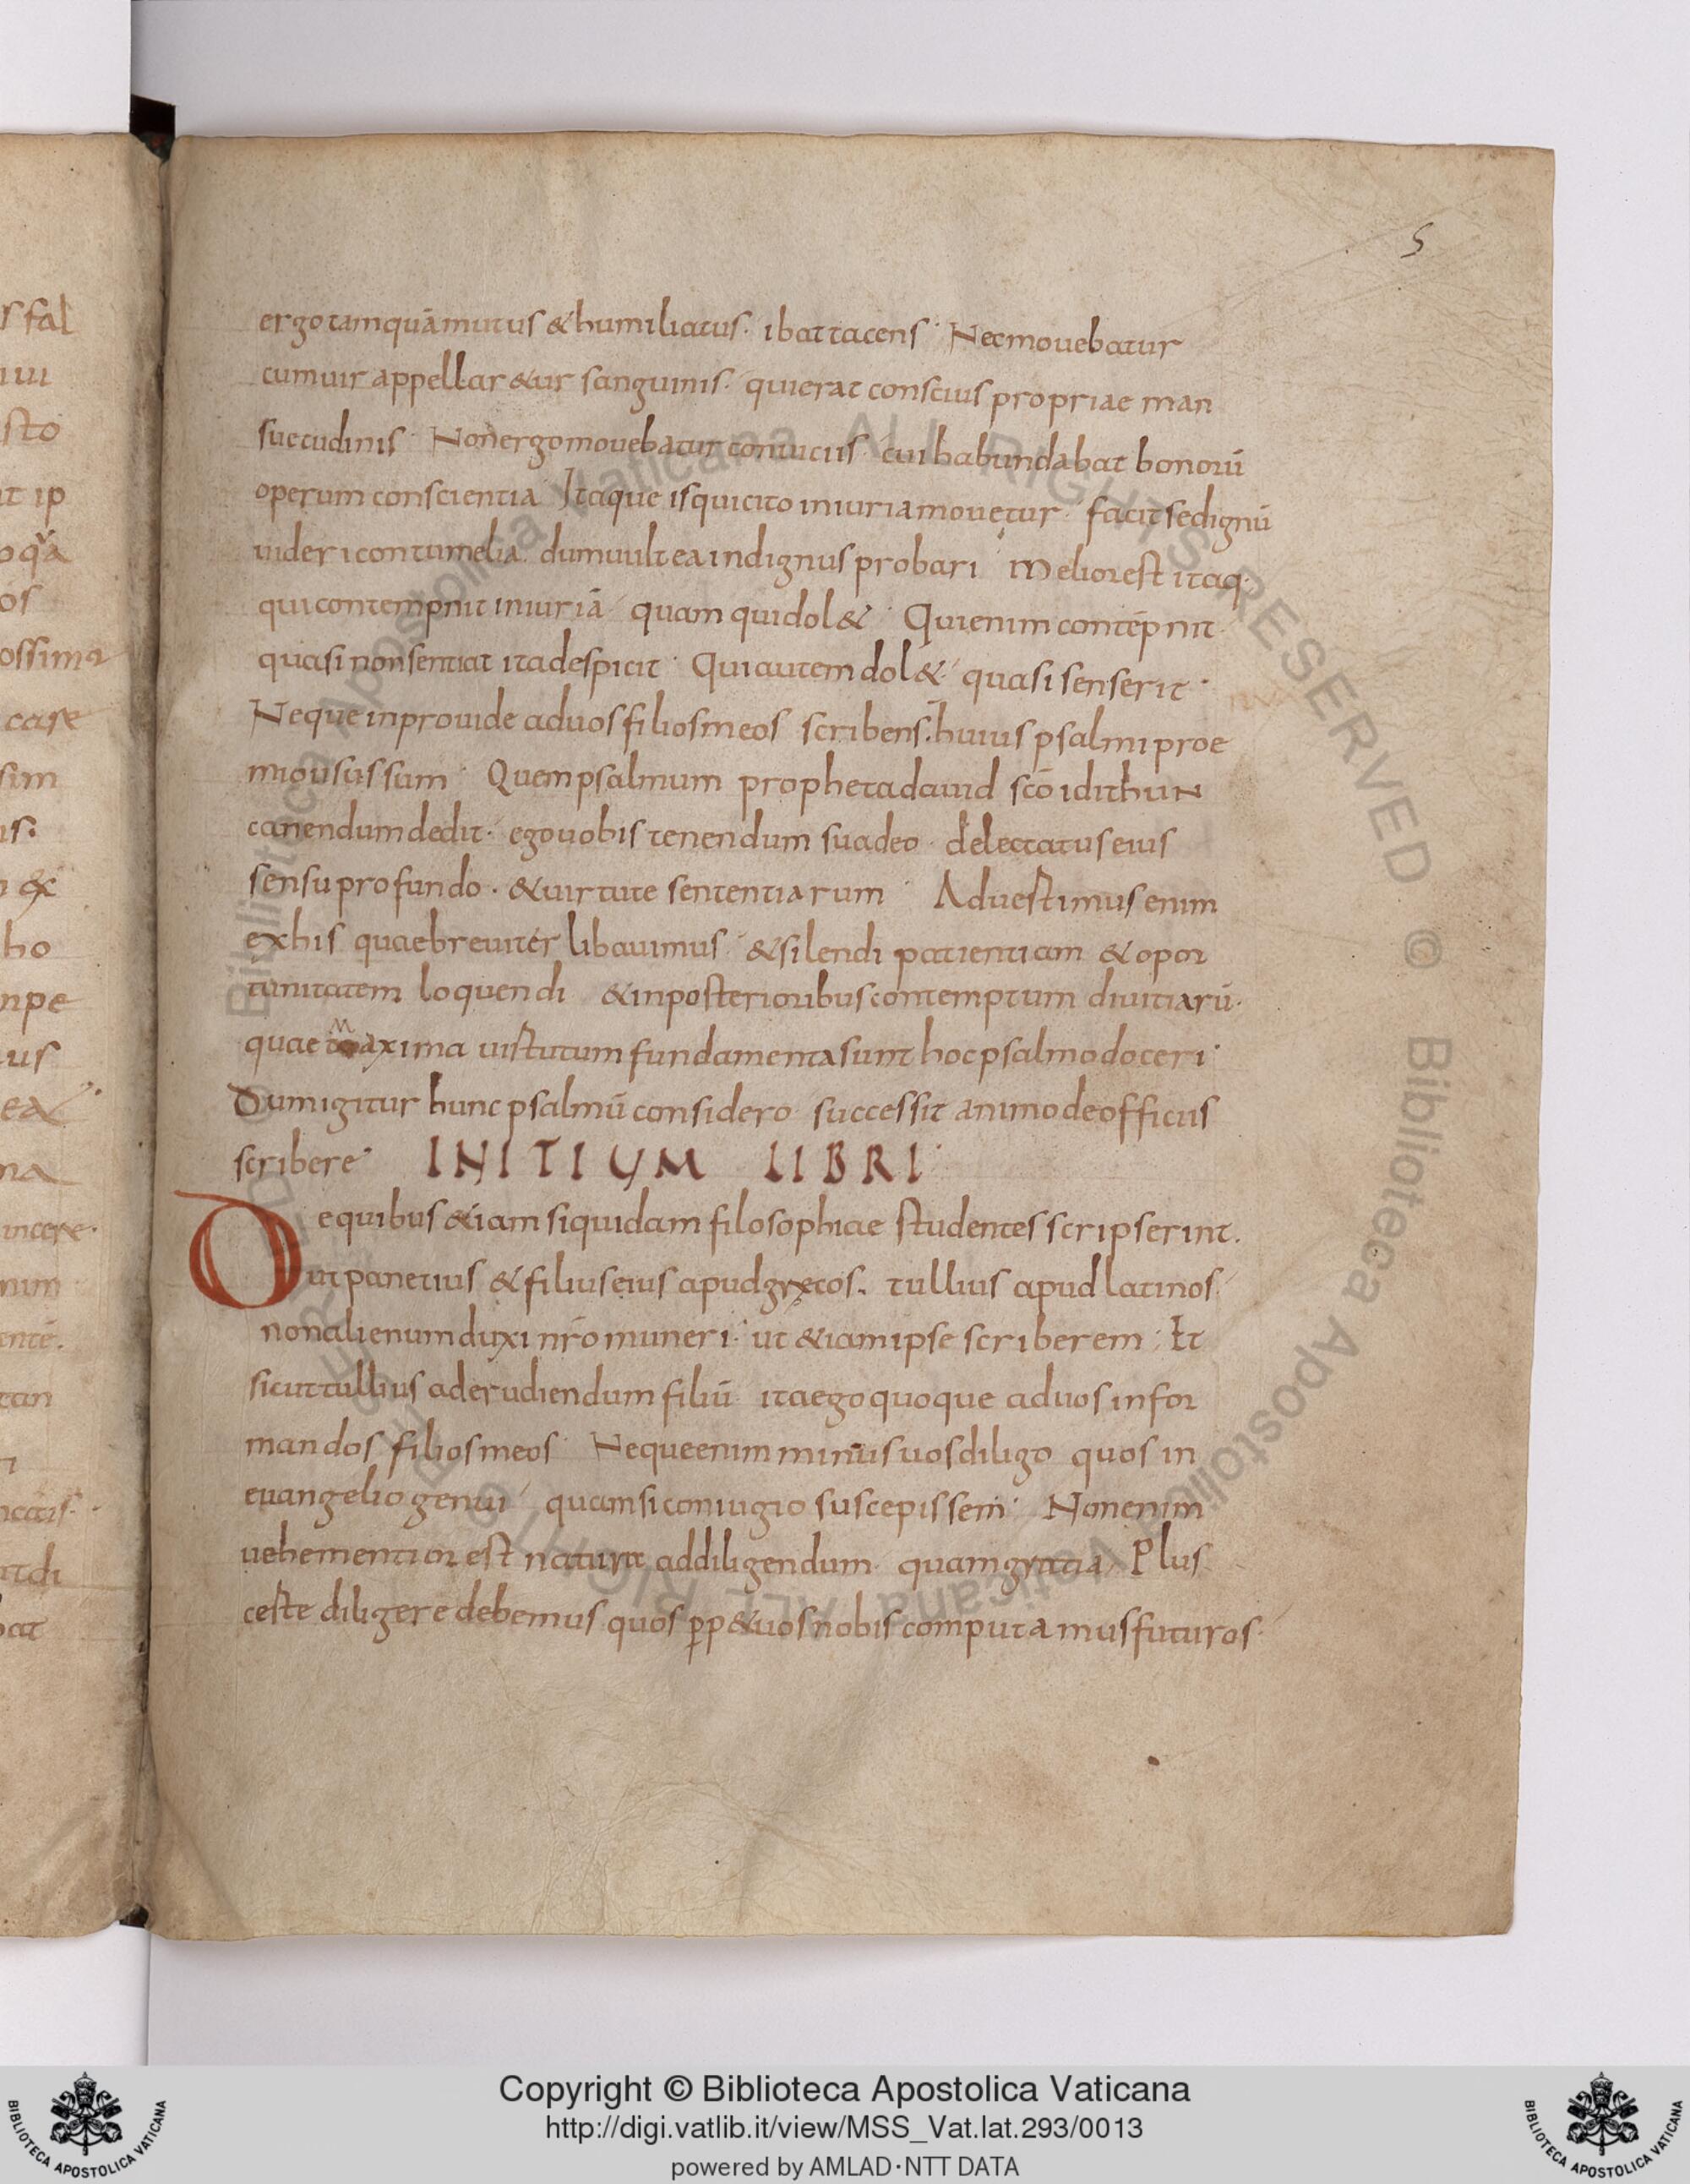 5
ergo tamquā mutus & humiliatus · ibat tacens · Nec mouebatur
cum uir appellar&ur sanguinis · qui erat conscius propriae man
suetudinis · Non ergo mouebatur conuiciis cui habundabat bonorū
operum conscientia · Itaque is qui cito iniuria mouetur · facit se dignū
uideri contumelia dum uult ea indignus probari · Melior est itaq·
qui contempnit iniuriā quam qui dol& · Qui enim contēpnit
quasi non sentiat ita despicit · Qui autem dol& quasi senserit ·
Neque inprouide ad uos filios meos scribens huius psalmi proe
mio usus sum · Quem psalmum propheta dauid scō idithun
canendum dedit · ego uobis tenendum suadeo · delectatus eius
sensu profundo · & uirtute sententiarum · Aduestimus enim
ex his quae breuiter libauimus & silendi patientiam & opor
tunitatem loquendi & in posterioribus contemptum diuitiarū ·
quae maxima uistutum fundamenta sunt hoc psalmo doceri ·
Dum igitur hunc psalmū considero successit animo de officiis
scribere · INITIUM LIBRI ·
De quibus &iam si quidam filosophiae studentes scripserint ·
ut panetius & filius eius apud grecos · tullius apud latinos ·
non alienum duxi nr̄o muneri · ut &iam ipse scriberem · Et
sicut tullius ad erudiendum filiū ita ego quoque ad uos infor
mandos filios meos · Neque enim minus uos diligo quos in
euangelio genui quam si coniugio suscepissem · Non enim
uehementior est natura ad diligendum quam gratia · Plus
ceste diligere debemus quos perp&uos nobis computamus futuros ·
Copyright © Biblioteca Apostolica Vaticana
http://digi.vatlib.it/view/MSS_Vat.lat.293/0013
powered by AMLAD·NTT DATA
BIBLIOTECA APOSTOLICA VATICANA
BIBLIOTECA APOSTOLICA VATICANA